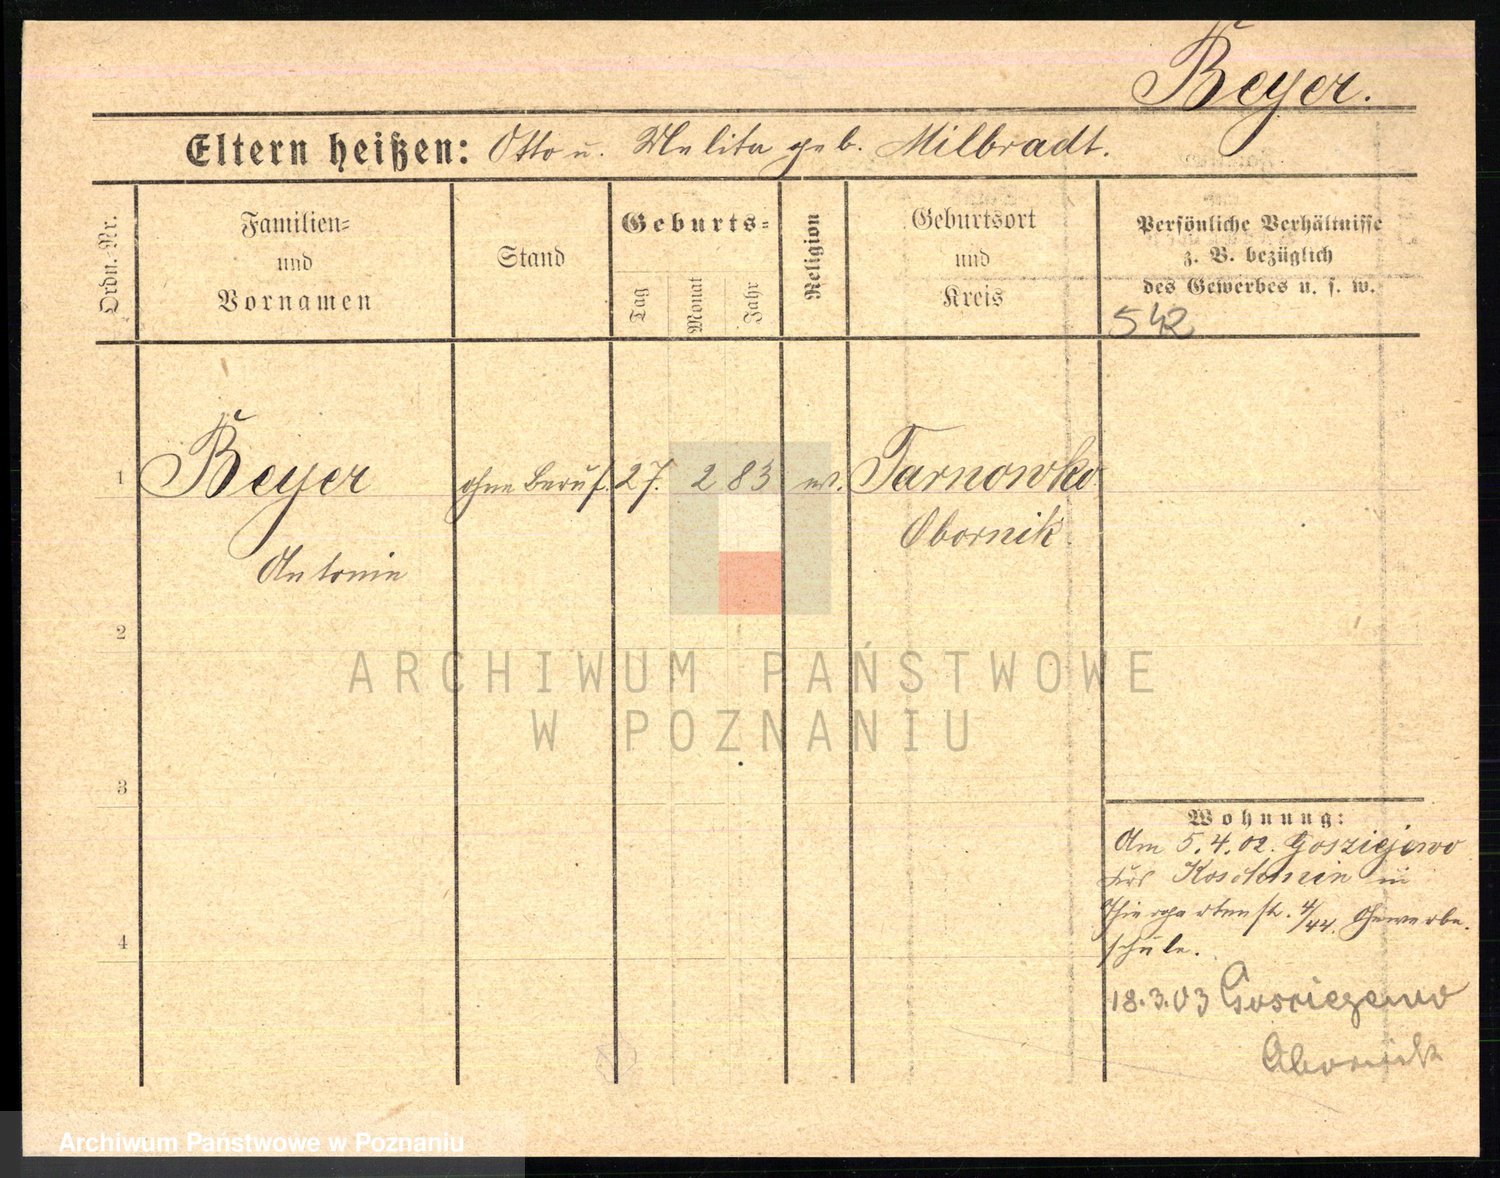 Beyer.
Eltern heißen: Otto u. Melita geb. Milbradt.
Ordn.-Nr.
Familien-
und
Vornamen
Stand
Geburts-
Tag
Monat
Jahr
Religion
Geburtsort
und
Kreis
Persönliche Verhältnisse
z. B. bezüglich
des Gewerbes u. s. w.
542
1 Beyer ohne Beruf. 27. 2 83 ev. Tarnowko
Obornik.
Antonie
2
3
4
Wohnung:
Am 5.4.02. Gosziejewo
Koschmin in
Thiergartenstr. 4/44. Gewerbe.
schule.
18.3.03
Obornik
ARCHIWUM PAŃSTWOWE
W POZNANIU
Archiwum Państwowe w Poznaniu